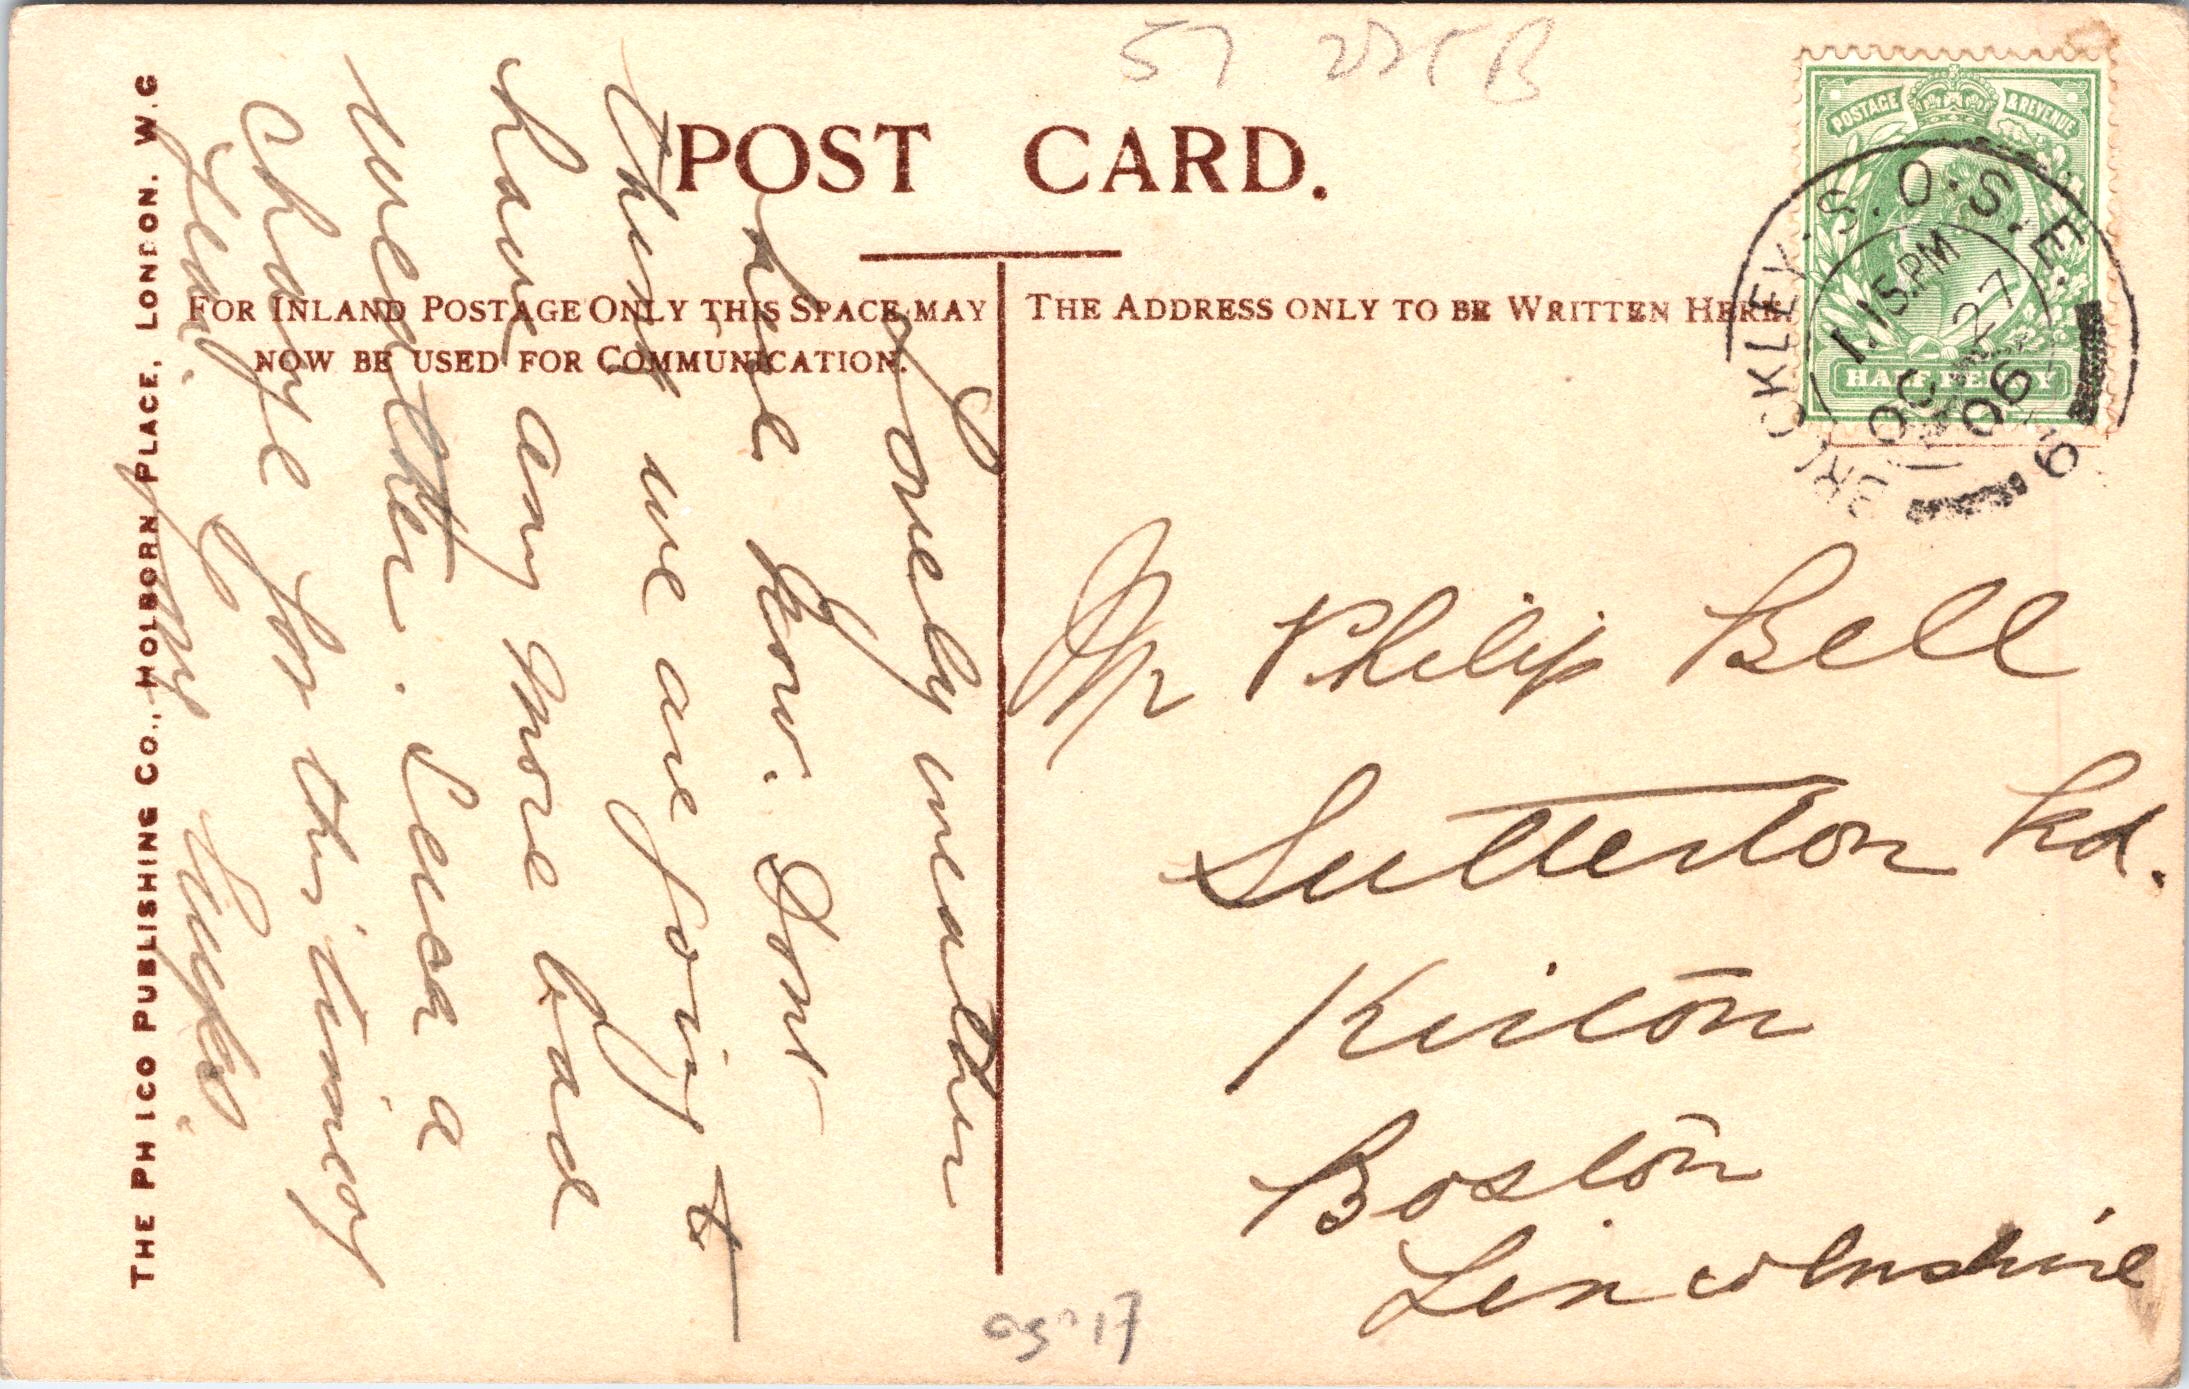 57 22TB
POST CARD.
FOR INLAND POSTAGE ONLY THIS SPACE MAY
NOW BE USED FOR COMMUNICATION.
THE ADDRESS ONLY TO BE WRITTEN HERE.
POSTAGE & REVENUE
HALF PENNY
BROCKLEY.S.O.S.E.
1.15.PM
OC 27
06
9
Lovely weather
here now. Dont
think we are going to
have any more bad
weather. Sends a
change for this time of
year.
Mr Philip Bell
Sutterton Rd.
Kirton
Boston
Lincolnshire
THE PHICO PUBLISHING CO., HOLBORN PLACE, LONDON. W.C